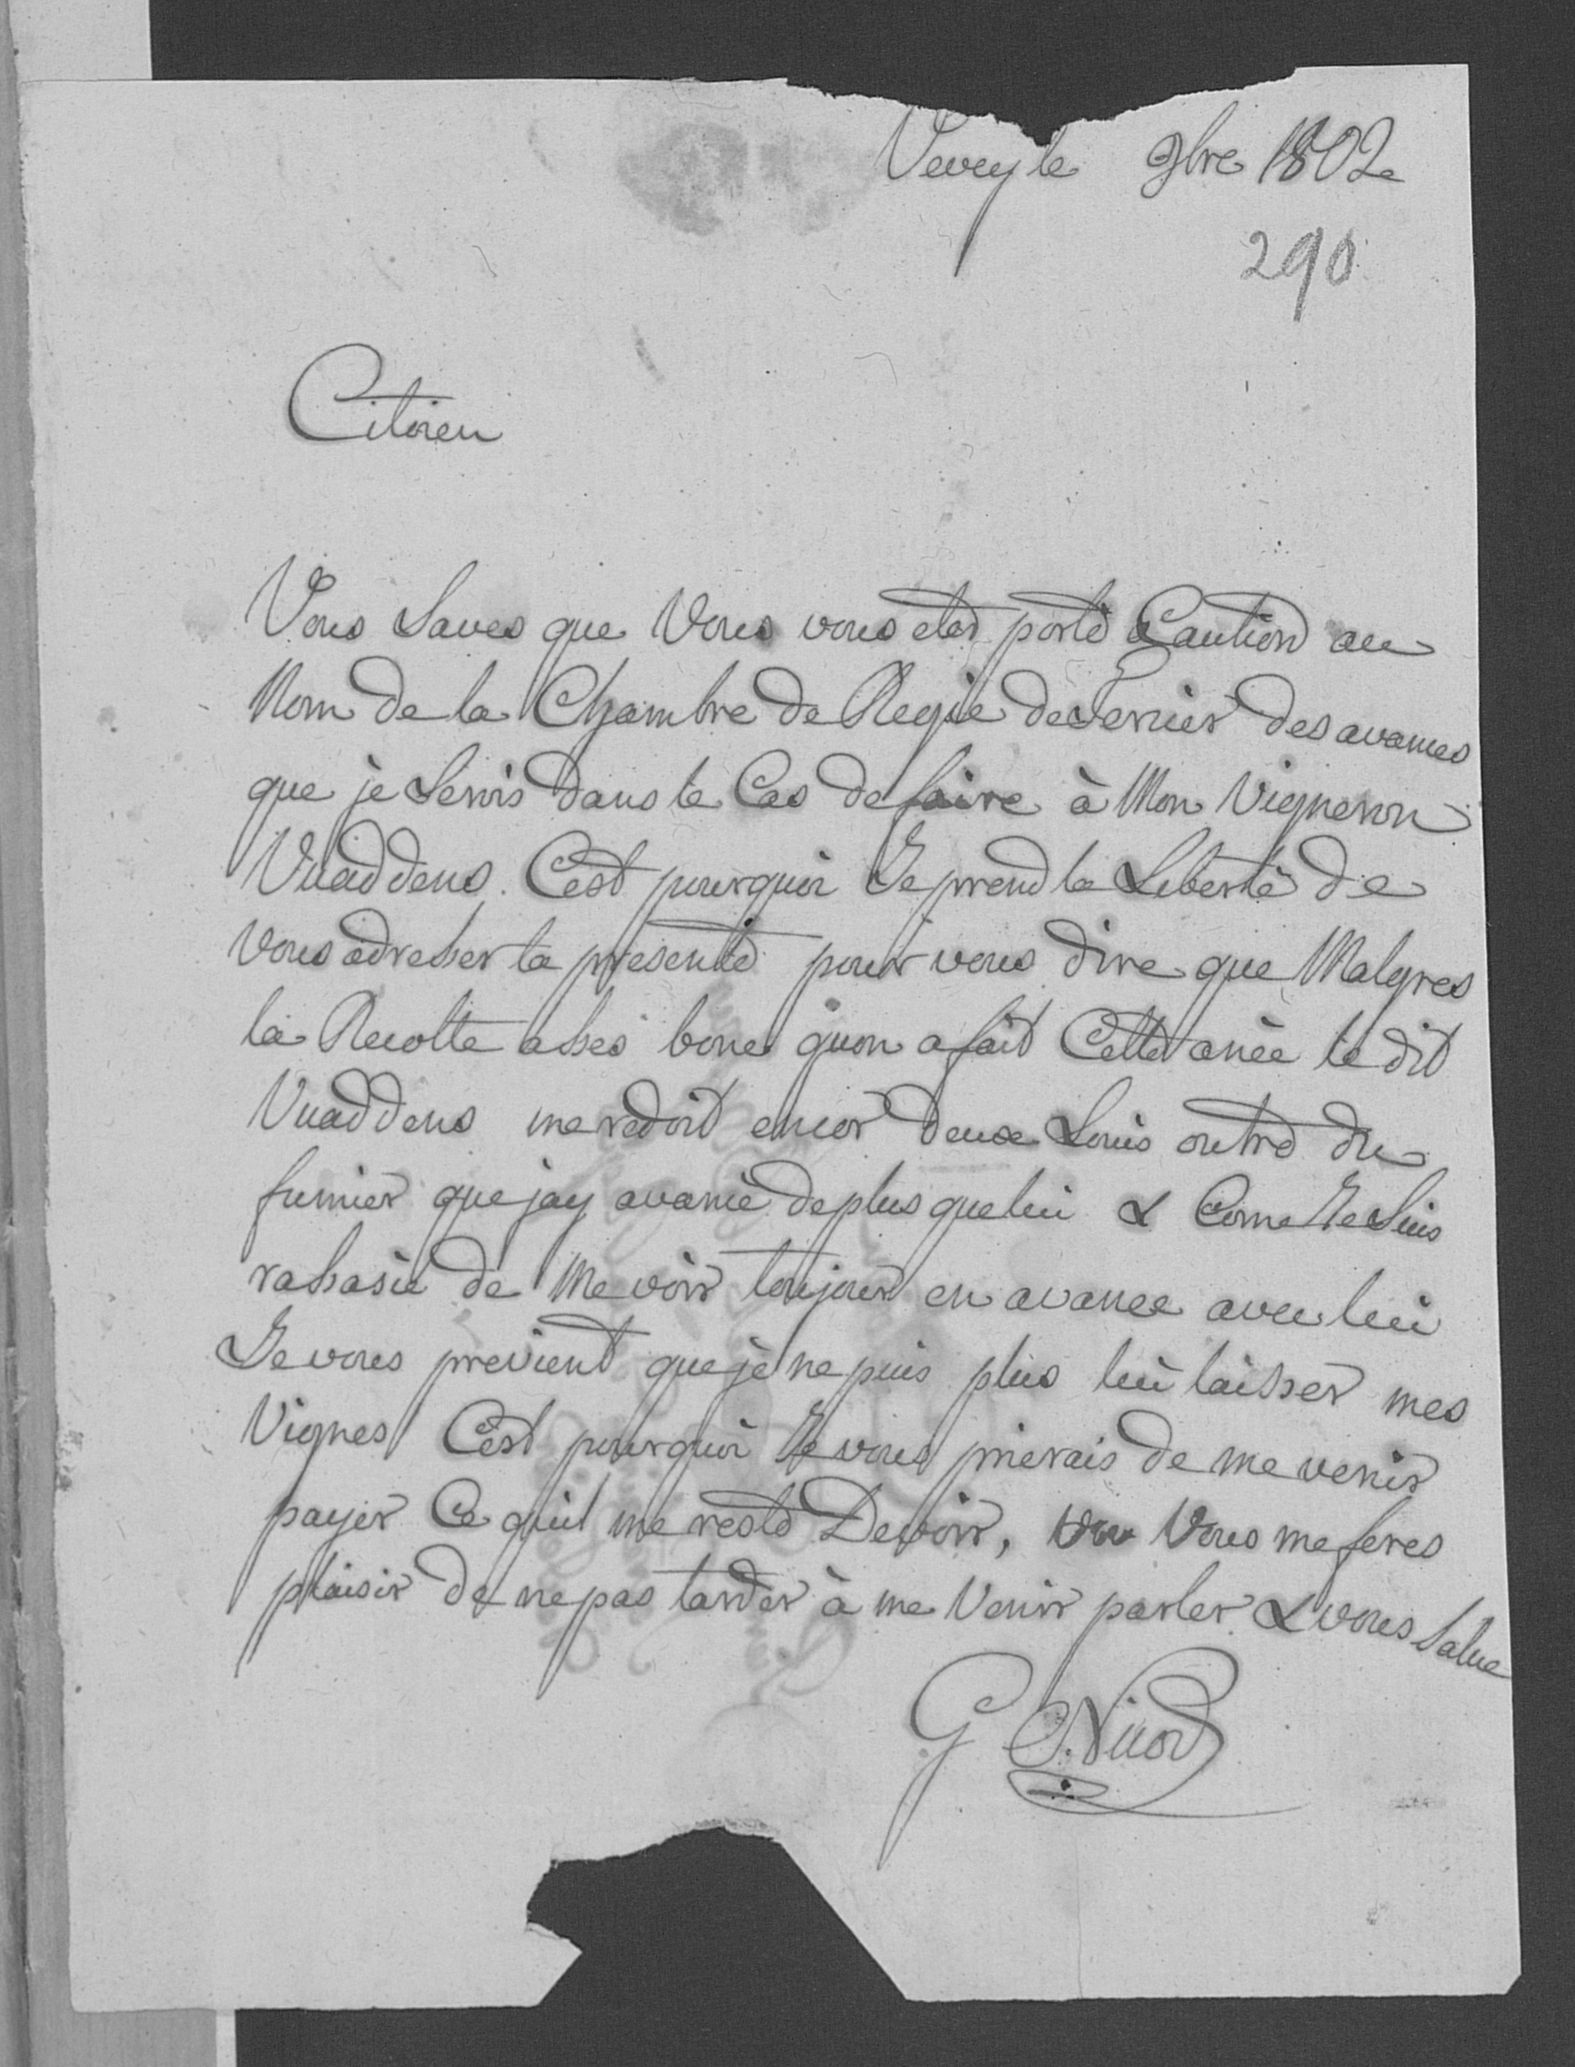 Vevey le 9bre 1802
290
Citoien
Vous Saves que Vous vous etes porté Caution au
Nom de la Chambre de Regie de Vernier des avances
que je Serois dans le Cas de faire à Mon Vigneron
Vuaddens. C'est pourquoi Je prend la Liberté de
vous adresser la présente pour vous dire que Malgres
la Recolte asses bone qu'on a fait Cette anée le dit
Vuaddens me redoit encor deux Louis outre du
fumier que jay avancé de plus que lui & Come Je Suis
rassasié de Me voir toujour en avance avec lui
Je vous previent que je ne puis plus lui laisser mes
Vignes C'est pourquoi Je vous prierais de me venir
payer Ce quil me reste Devoir, Vous me feres
plaisir de ne pas tarder à me Venir parler & vous Salue
G Nicod